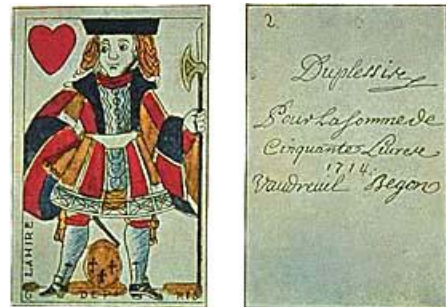 LAHIRE
2.
Duplessis
Pour la Somme de
Cinquantes Livres
1714
Vaudreuil Begon